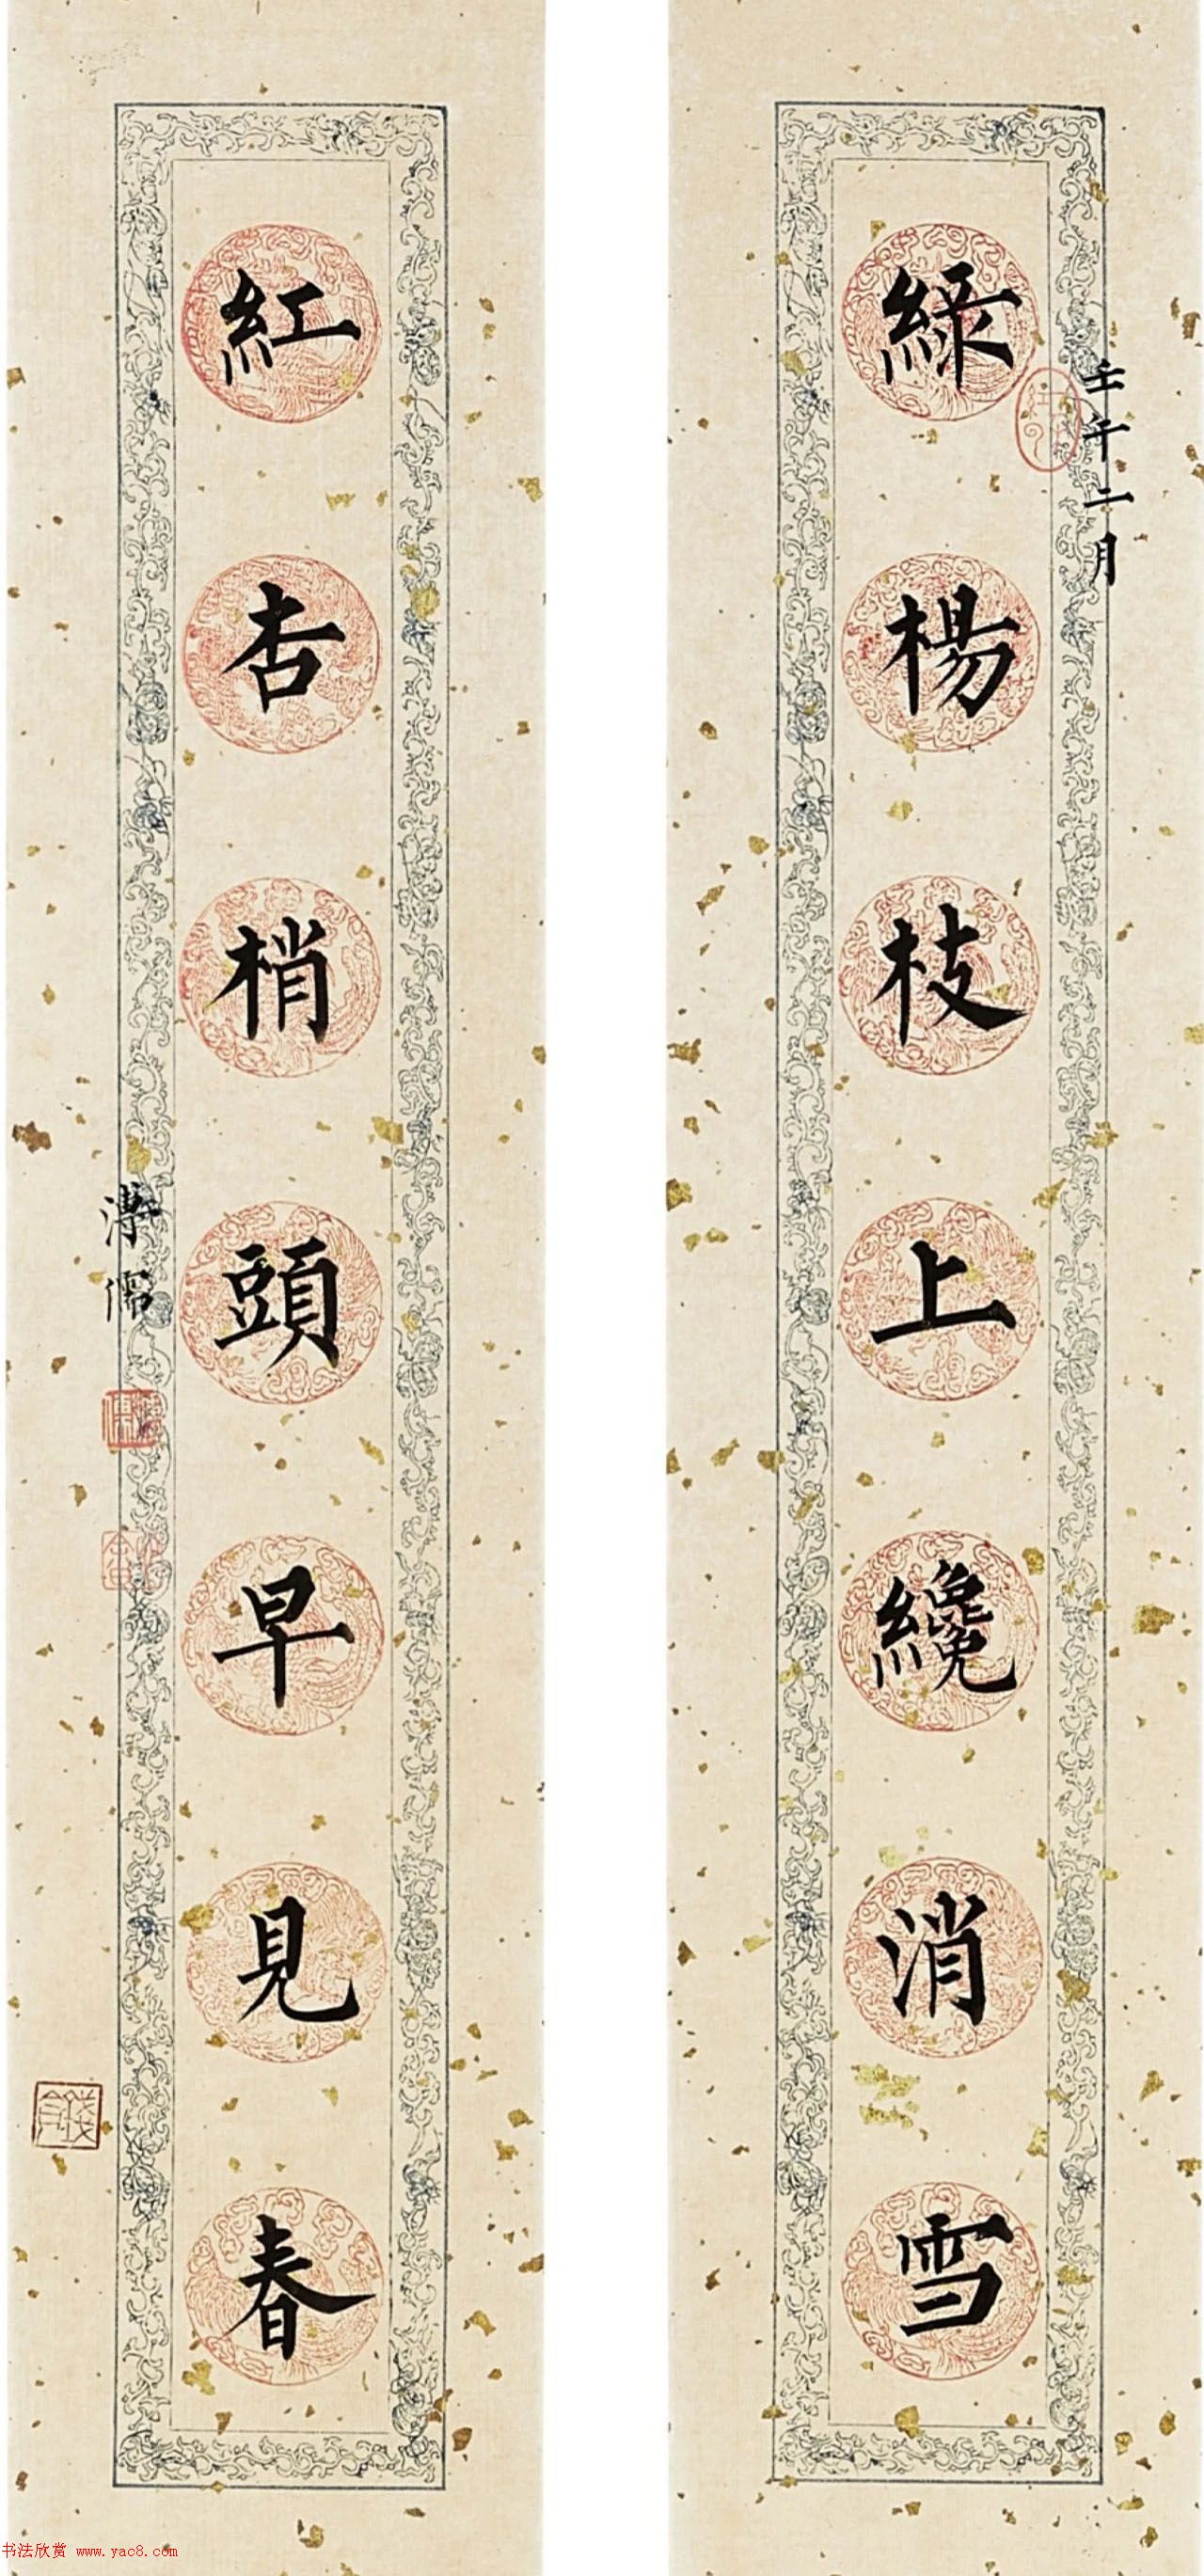 壬午二月
綠楊枝上纔消雪
紅杏梢頭早見春
溥儒
书法欣赏 www.yac8.com